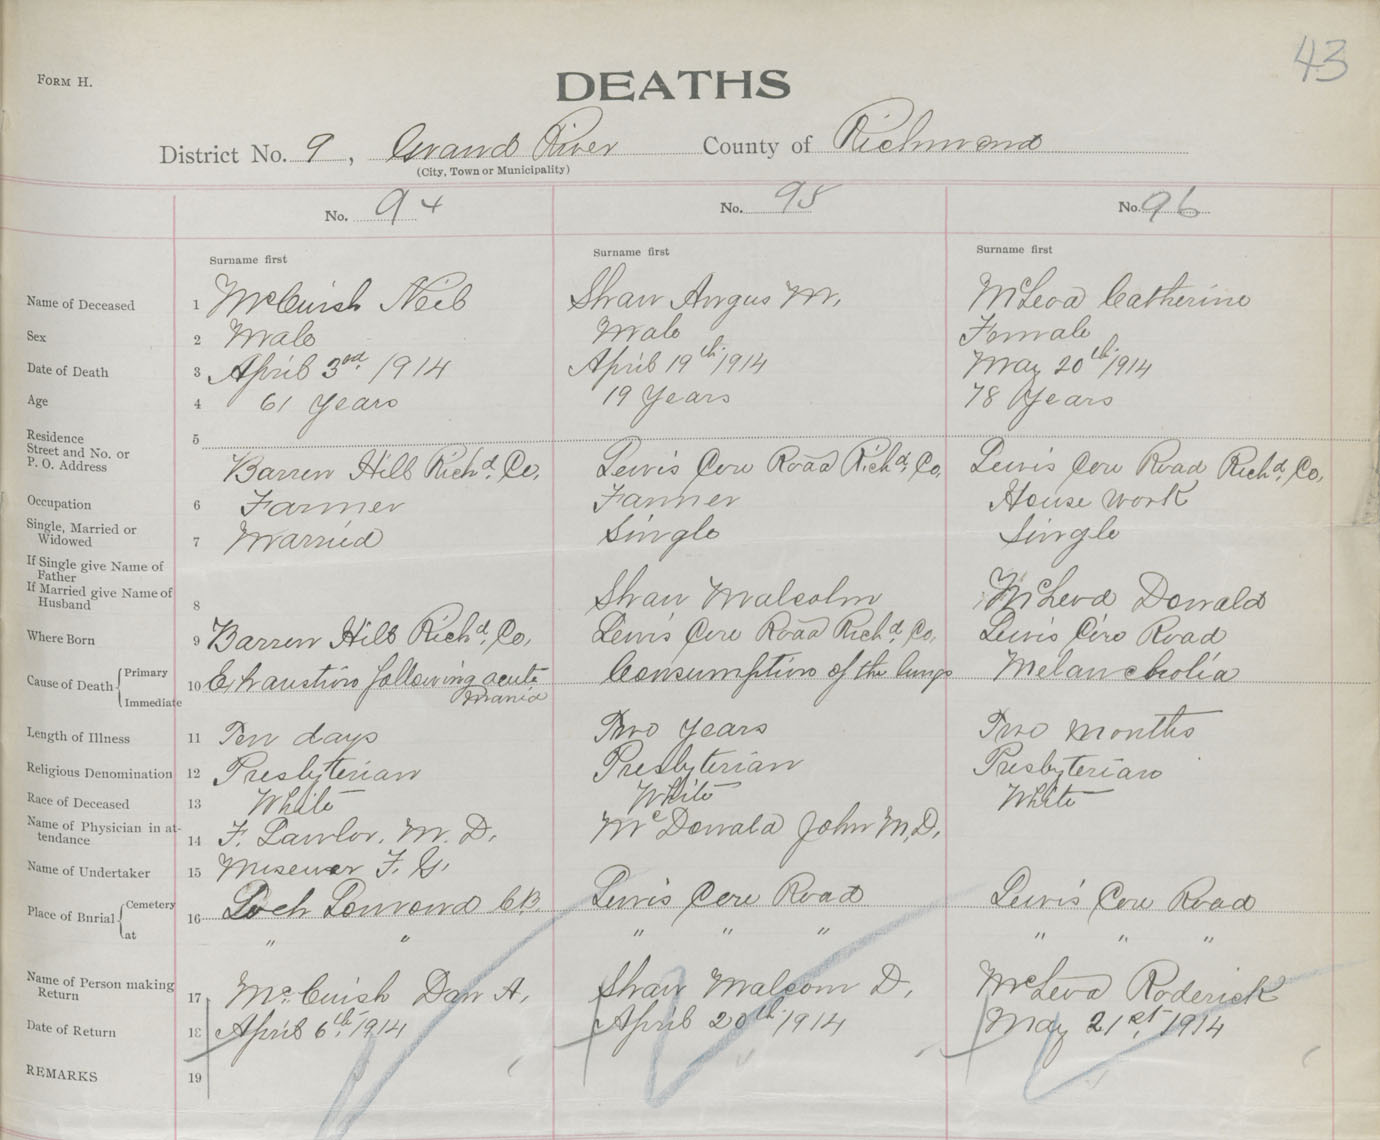 43
FORM H.
DEATHS
District No. 9, Grand River County of Richmond
(City, Town or Municipality)
No. 94 No. 95 No. 96
Surname first Surname first Surname first
Name of Deceased 1 McCuish Neil Shaw Angus M. McLeod Catherine
Sex 2 Male Male Female
Date of Death 3 April 3rd. 1914 April 19th. 1914 May 20th. 1914
Age 4 61 Years 19 Years 78 Years
Residence 5
Street and No. or
P. O. Address Barren Hill Richd. Co. Lewis Cove Road Richd. Co. Lewis Cove Road Richd. Co.
Occupation 6 Farmer Farmer House work
Single, Married or
Widowed 7 Married Single Single
If Single give Name of
Father
If Married give Name of
Husband 8 Shaw Malcolm McLeod Donald
Where Born 9 Barren Hill Richd. Co. Lewis Cove Road Richd. Co. Lewis Cove Road
Cause of Death { Primary 10 Exhaustion following acute Consumption of the lungs Melancholia
Immediate mania
Length of Illness 11 Ten days Two years Two months
Religious Denomination 12 Presbyterian Presbyterian Presbyterian
Race of Deceased 13 White White White
Name of Physician in at-
tendance 14 F. Lawlor. M. D. McDonald John M.D.
Name of Undertaker 15 Misener F. G.
Place of Burial { Cemetery 16 Loch Lomond C.B. Lewis Cove Road Lewis Cove Road
at " " " " " " " "
Name of Person making
Return 17 McCuish Dan A. Shaw Malcom D. McLeod Roderick
Date of Return 18 April 6th. 1914 April 20th 1914 May 21st. 1914
REMARKS 19